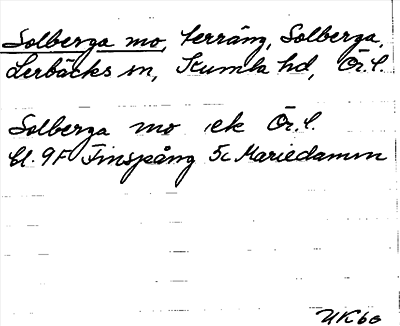 Solberga mo, terräng, Solberga,
Lerbäcks sn, Kumla hd, Ör.l.
Solberga mo ek Ör.l.
bl. 9F Finspång 5c Mariedamm
UK60